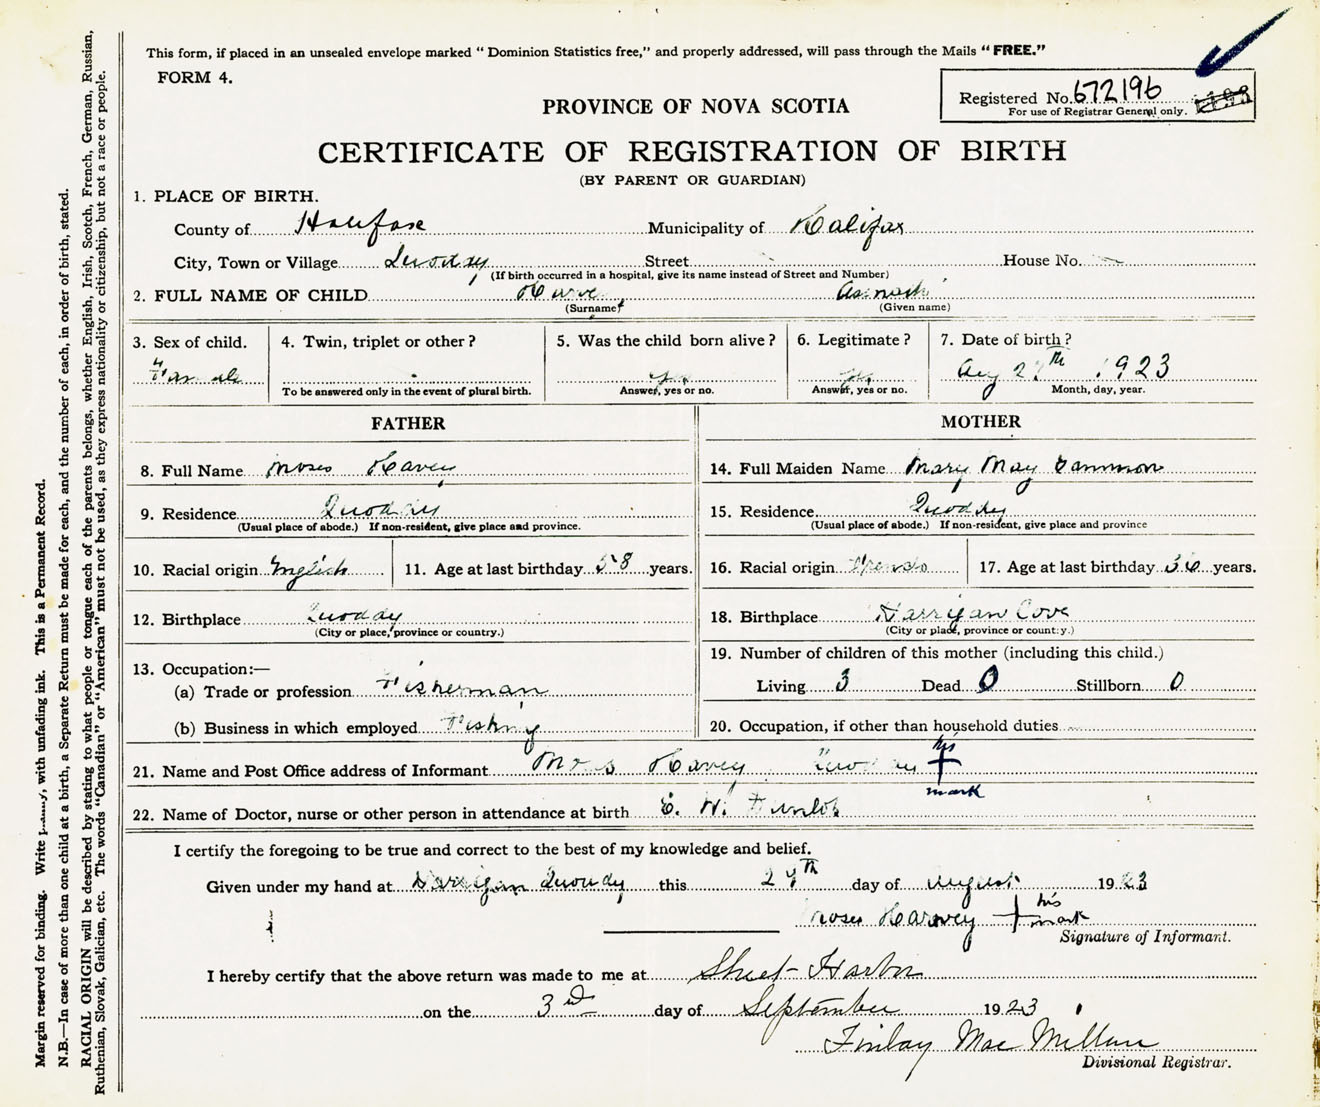 This form, if placed in an unsealed envelope marked “Dominion Statistics free,” and properly addressed, will pass through the Mails “FREE.”
FORM 4.
Registered No. 672196
For use of Registrar General only.
PROVINCE OF NOVA SCOTIA
CERTIFICATE OF REGISTRATION OF BIRTH
(BY PARENT OR GUARDIAN)
1. PLACE OF BIRTH.
County of Halifax Municipality of Halifax
City, Town or Village Quoddy Street House No.
(If birth occurred in a hospital, give its name instead of Street and Number)
2. FULL NAME OF CHILD
(Surname) (Given name)
3. Sex of child. 4. Twin, triplet or other? 5. Was the child born alive? 6. Legitimate? 7. Date of birth?
Yes Aug 27th 1923
To be answered only in the event of plural birth. Answer, yes or no. Answer, yes or no. Month, day, year.
FATHER
8. Full Name Moses Havey
9. Residence Quoddy
(Usual place of abode.) If non-resident, give place and province.
10. Racial origin English 11. Age at last birthday 58 years.
12. Birthplace Quoddy
(City or place, province or country.)
13. Occupation:—
(a) Trade or profession Fisherman
(b) Business in which employed Fishing
MOTHER
14. Full Maiden Name Mary May Gammon
15. Residence Quoddy
(Usual place of abode.) If non-resident, give place and province
16. Racial origin 17. Age at last birthday 36 years.
18. Birthplace Harrigan Cove
(City or place, province or country.)
19. Number of children of this mother (including this child.)
Living 3 Dead 0 Stillborn 0
20. Occupation, if other than household duties
21. Name and Post Office address of Informant Moses Havey Quoddy his + mark
22. Name of Doctor, nurse or other person in attendance at birth E. W. Dunlop
I certify the foregoing to be true and correct to the best of my knowledge and belief.
Given under my hand at Harrigan Quoddy this 27th day of August 1923
Moses Harvey + his mark
Signature of Informant.
I hereby certify that the above return was made to me at Sheet Harbor
on the 3rd day of September 1923
Finlay MacMillan
Divisional Registrar.
Margin reserved for binding. Write plainly, with unfading ink. This is a Permanent Record.
N.B.—In case of more than one child at a birth, a Separate Return must be made for each, and the number of each, in order of birth, stated.
RACIAL ORIGIN will be described by stating to what people or tongue each of the parents belongs, whether English, Irish, Scotch, French, German, Russian,
Ruthenian, Slovak, Galician, etc. The words “Canadian” or “American” must not be used, as they express nationality or citizenship, but not a race or people.